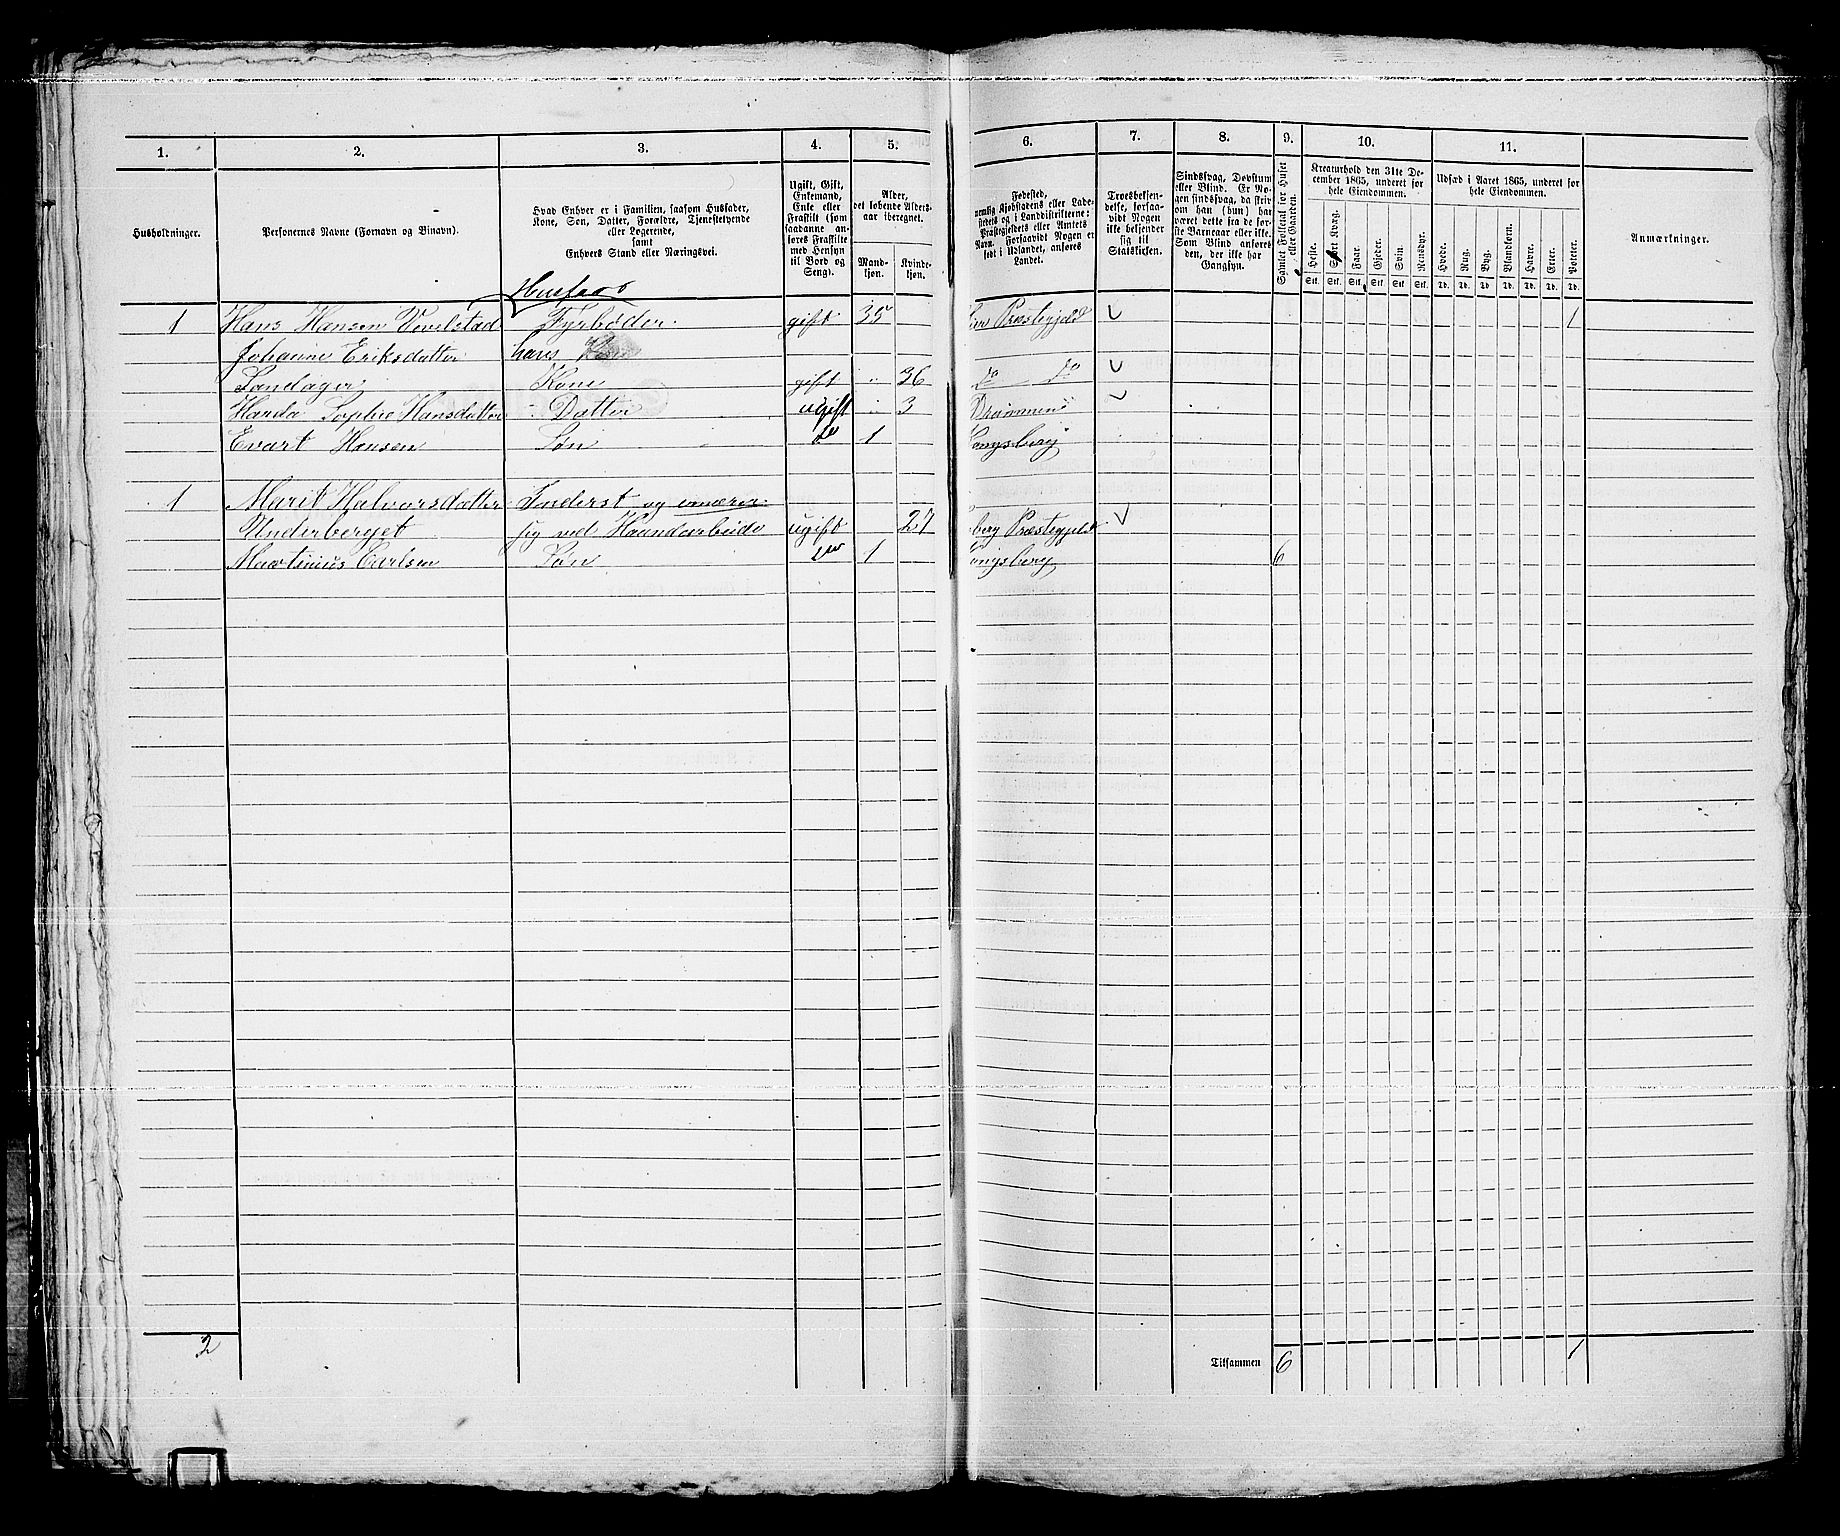 1. 2. 3. 4. 5. 6. 7. 8. 9. 10. 11.
Husholdninger.
Personernes Navne (Fornavn og Binavn).
Hvad Enhver er i Familien, saasom Husfader,
Kone, Søn, Datter, Forældre, Tjenestetyende
eller Logerende,
samt
Enhvers Stand eller Næringsvei.
Ugift, Gift,
Enkemand,
Enke eller
Fraskilt (som
saadanne an-
føres Fraskilte
med Hensyn
til Bord og
Seng).
Alder,
det løbende Alders-
aar iberegnet.
Mand-
kjøn.
Kvinde-
kjøn.
Fødested,
nemlig Kjøbstadens eller Lade-
stedets og i Landdistrikterne:
Præstegjeldets eller Amtets
Navn. Forsaavidt Nogen er
født i Udlandet, anføres
Landet.
Troesbekjen-
delse, forsaa-
vidt Nogen
ikke bekjender
sig til
Statskirken.
Sindssvag, Døvstum
eller Blind. Er No-
gen sindssvag, da skriv
om han (hun) har
været dette fra de før-
ste Barneaar eller ikke.
Som Blind anføres
den, der ikke har
Gangsyn.
Samlet Folketal for Huset
eller Gaarden.
Kreaturhold den 31te De-
cember 1865, underet for
hele Eiendommen.
Heste. Stort Kvæg. Faar. Gjeder. Svin. Rensdyr.
Stk. Stk. Stk. Stk. Stk. Stk.
Udsæd i Aaret 1865, underet for
hele Eiendommen.
Hvede. Rug. Byg. Blandkorn. Havre. Erter. Poteter.
Td. Td. Td. Td. Td. Td. Td.
Anmærkninger.
Husfader
1 Hans Hansen Vevelstad Fyrbøder gift 35 Lier Præstegjeld 1
Johanne Eriksdatter hans
Landager Kone gift " 36 do do
Harda Sophie Hansdatter Datter ugift " 3 Drammen
Evart Hansen Søn do 1 Kongsberg
1 Marit Halvorsdatter Inderst og ernærer
Underberget sig ved Haandarbeide ugift 27 berg Præstegjeld
Martinius Carlsen Søn do 1 Kongsberg 6
2 Tilsammen 6 1